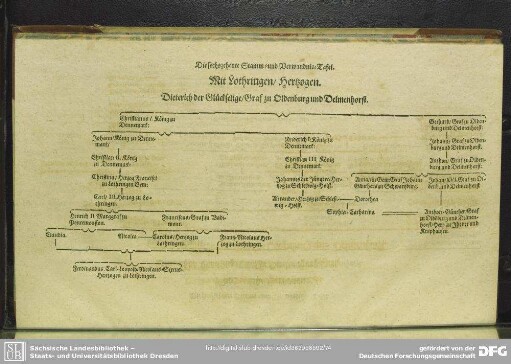 Die sechzehente Stamm- und Verwandnis-Tafel.
Mit Lothringen/ Hertzogen.
Dieterich der Glückselige/ Graf zu Oldenburg und Delmenhorst.
Christianus I. König zu
Dennemark.
Gerhard/ Graf zu Olden-
burg und Delmenhorst.
Johann/ König zu Denne-
mark.
Friederich I. König zu
Dennemark.
Johann/ Graf zu Olden-
burg und Delmenhorst.
Christian II. König
zu Dennemark.
Christian III. König
zu Dennemark.
Anthon/ Graf zu Olden-
burg und Delmenhorst.
Christina/
zu Lothringen Gem.
Johannes der Jüngere/ Her-
tzog zu Schleswig-Holst.
Günthern zu Schwartzburg.
Johann/ Graf zu Ol-
denb. und Delmenhorst.
Carl/ Hertzog zu Lo-
thringen.
Alexander/ Hertzog zu Schles-
wig-Holst.
Dorothea
Heinrich II. Marggraf zu
Franciscus/ Graf zu Vade-
mont.
Sophia Catharina
Anthon Günther/ Graf
zu Oldenburg und Delmen-
horst/ Herr zu Jhever und
Kniphausen.
Claudia.
Nicolea
Carolus/ Hertzog zu
Lothringen.
Hertzog zu Lothringen.
Ferdinandus
Hertzogen zu Lothringen.
SLUB
Sächsische Landesbibliothek –
Staats- und Universitätsbibliothek Dresden
gefördert von der
Deutschen Forschungsgemeinschaft
DFG